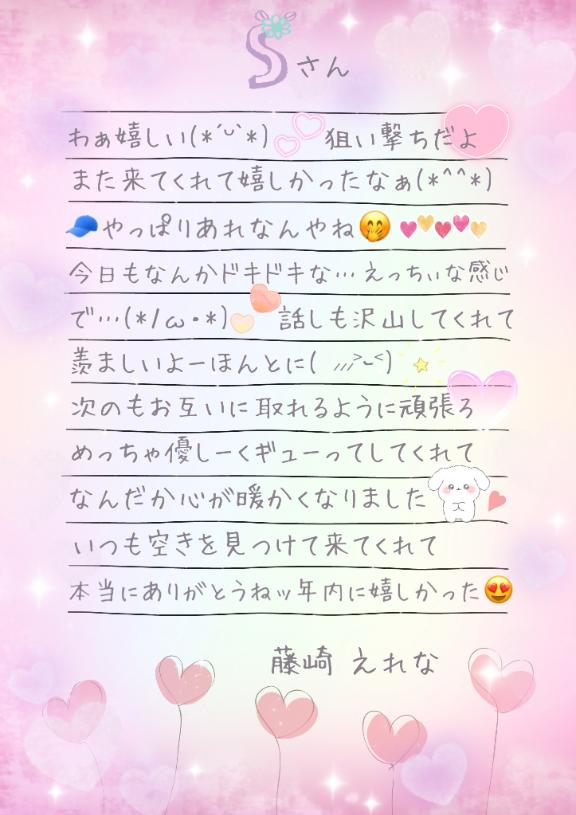 Sさん
わぁ嬉しい(*´˘`*) 狙い撃ちだよ
また来てくれて嬉しかったなぁ(*^^*)
🧢やっぱりあれなんやね🤭
今日もなんかドキドキな…えっちぃな感じ
で…(*/ω・*) 話しも沢山してくれて
羨ましいよーほんとに( ⸝⸝⸝>ᴗ<)
次のもお互いに取れるように頑張ろ
めっちゃ優しーくギューってしてくれて
なんだか心が暖かくなりました
いつも空きを見つけて来てくれて
本当にありがとうねッ年内に嬉しかった😍
藤崎 えれな